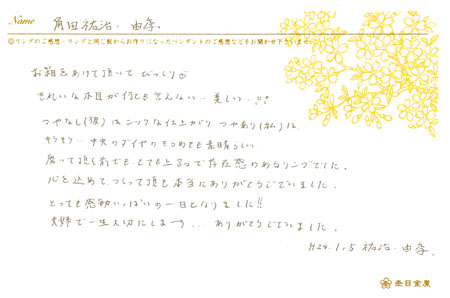 Name 角田祐治・由季
◎リングのご感想・リングと同じ板からお作りになったペンダントのご感想などをお聞かせ下さいませ
お箱をあけて頂いて びっくり
きれいな木目が何とも言えない… 美しい…!!
つやなし(彼)はシックな仕上がり つやあり(私)は、
キラキラ… 中央のダイヤのきらめきも素晴らしい
届いて頂く前でも、とても上品で存在感のあるリングでした。
心を込めて、つくって頂き本当にありがとうございました。
とっても感動いっぱいの一日となりました!!
夫婦で一生大切にしまーす… ありがとうございました。
H24.1.5 祐治・由季
杢目金屋